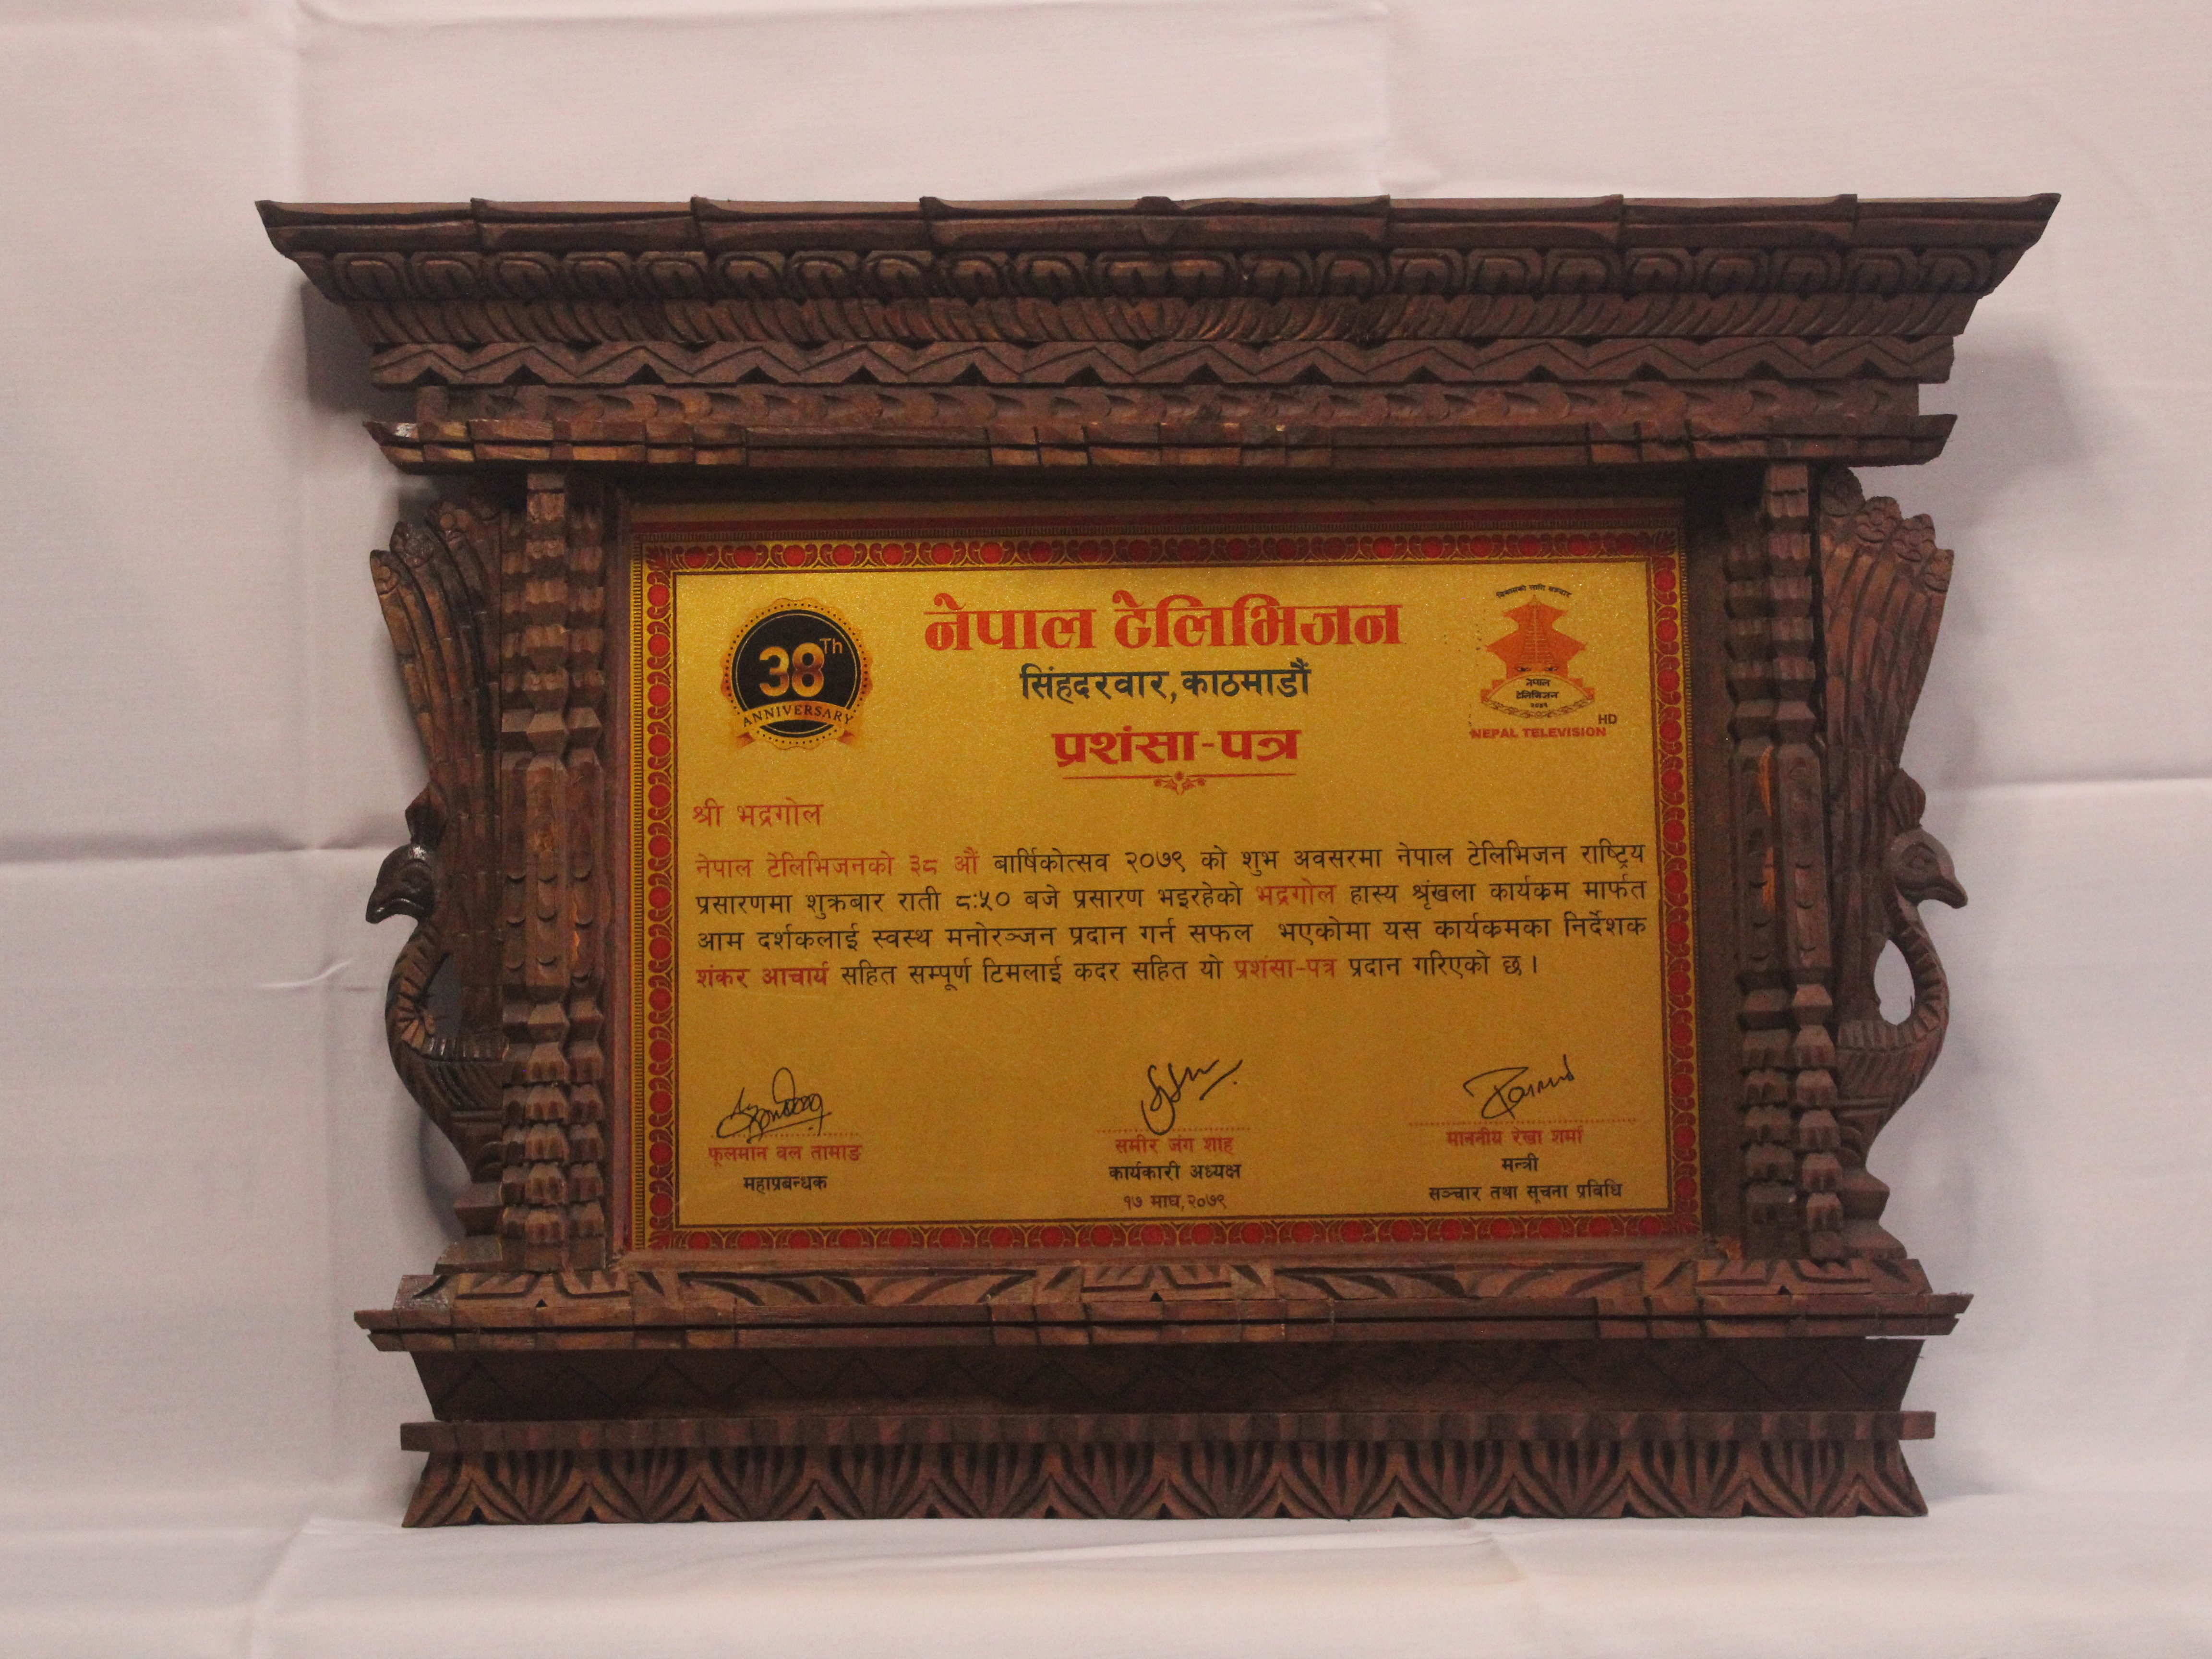 38Th
ANNIVERSARY
नेपाल टेलिभिजन
सिंहदरवार,काठमाडौं
प्रशंसा-पत्र
नेपाल
टेलिभिजन
HD
NEPAL TELEVISION
श्री भद्रगोल
नेपाल टेलिभिजनको ३८ औं बार्षिकोत्सव २०७९ को शुभ अवसरमा नेपाल टेलिभिजन राष्ट्रिय
प्रसारणमा शुक्रबार राती ८:५० बजे प्रसारण भइरहेको भद्रगोल हास्य श्रृंखला कार्यक्रम मार्फत
आम दर्शकलाई स्वस्थ मनोरञ्जन प्रदान गर्न सफल भएकोमा यस कार्यक्रमका निर्देशक
शंकर आचार्य सहित सम्पूर्ण टिमलाई कदर सहित यो प्रशंसा-पत्र प्रदान गरिएको छ ।
फूलमान वल तामाङ
महाप्रबन्धक
समीर जंग शाह
कार्यकारी अध्यक्ष
१७ माघ,२०७९
माननीय रेखा शर्मा
मन्त्री
सञ्चार तथा सूचना प्रबिधि